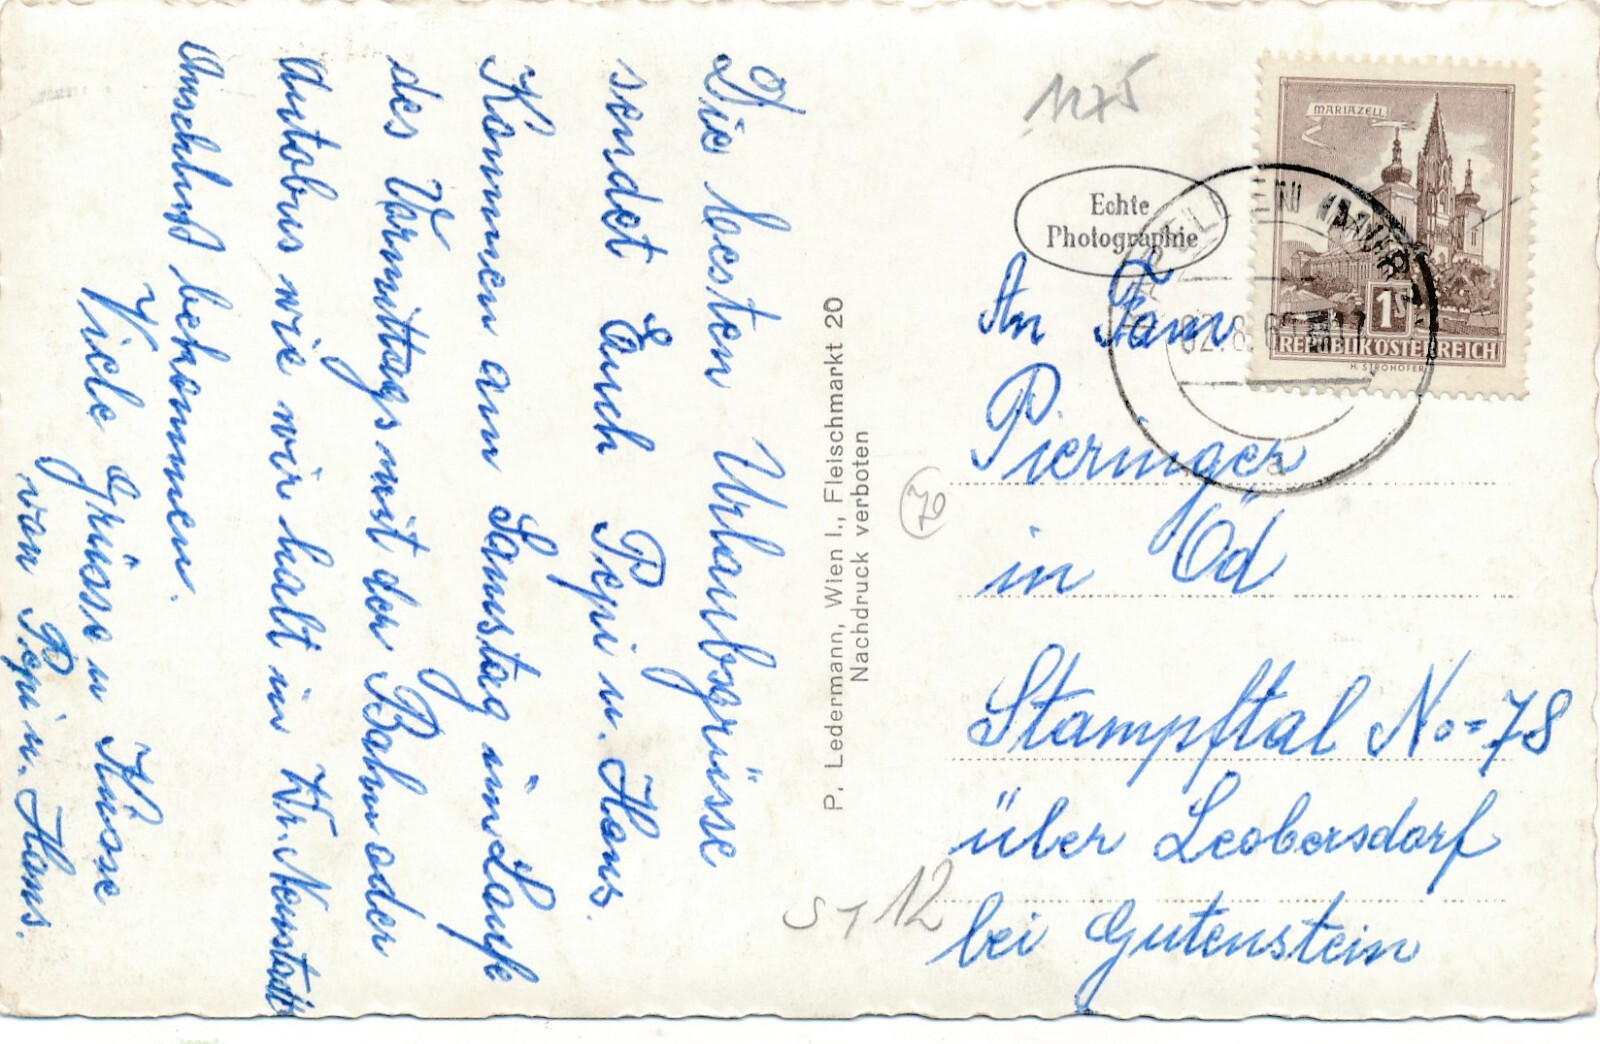 Die besten Urlaubsgrüsse
sendet Euch Pepi u. Hans.
Kommen am Samstag im Laufe
des Vormittags mit der Bahn oder
Autobus wie wir halt in Wr. Neustadt
Anschluß bekommen.
Viele Grüsse u Küsse
von Pepi u. Hans.
P. Ledermann, Wien I., Fleischmarkt 20
Nachdruck verboten
1175
Echte
Photographie
MARIAZELL
1S
REPUBLIK ÖSTERREICH
H. STROHOFER
02.8.6
An Fam
Pieringer
in Öd
Stampftal No=78
über Leobersdorf
bei Gutenstein
70
ST 12